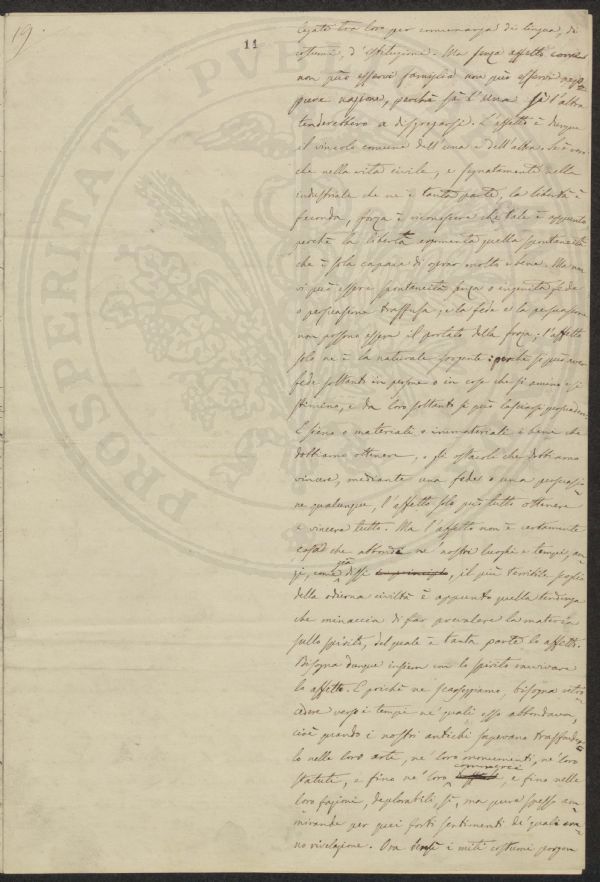 19.
11
PROSPERITATI PUBL
legato tra loro per comunanza di lingua, di
costumi, d'istituzione. Ma senza affetto come
non può esservi famiglia non può esservi nep-
pure nazione, perchè sì l'una sì l'altra
tenderebbero a disgregarsi. L'affetto è dunque
il vincolo comune dell'una e dell'altra. Se è vero
che nella vita civile, e segnatamente nella
industriale che ne è tanta parte, la libertà è
feconda, forza è riconoscere che tale è appunto
perchè la libertà aumenta quella spontaneità
che è sola capace di oprar molto e bene. Ma non
vi può essere spontaneità senza o ingenita fede
o persuasione trasfusa, e la fede e la persuasione
non possono essere il portato della forza; l'affetto
solo ne è la naturale sorgente perchè si può aver
fede soltanto in persone o in cose che si amano e si
stimino, e da loro soltanto si può lasciarsi persuadere.
E sieno o materiali o immateriali i beni che
dobbiamo ottenere, e gli ostacoli che dobbiamo
vincere, mediante una fede o una persuasio-
ne qualunque, l'affetto solo può tutto ottenere
e vincere tutto. Ma l'affetto non è certamente
cosa che abbondi ne' nostri luoghi e tempi, an-
zi, come già dissi, il più terribile
della odierna civiltà è appunto quella tendenza
che minaccia di far prevalere la materia
sullo spirito, del quale è tanta parte lo affetto.
Bisogna dunque insieem con lo spirito ravvivare
lo affetto. E poichè ne scarseggiamo, bisogna retro-
cedere verso i tempi ne' quali esso abbondava,
cioè quando i nostri antichi sapevano trasfonder-
lo nelle loro arte, ne' loro monumenti, ne' loro
statuti, e fino ne' loro commerci, e fino nelle
loro fazioni, deplorabili, sì, ma pure spesso am-
mirande per quei forti sentimenti de' quali era-
no rivelazione. Ora i miti costumi porgon